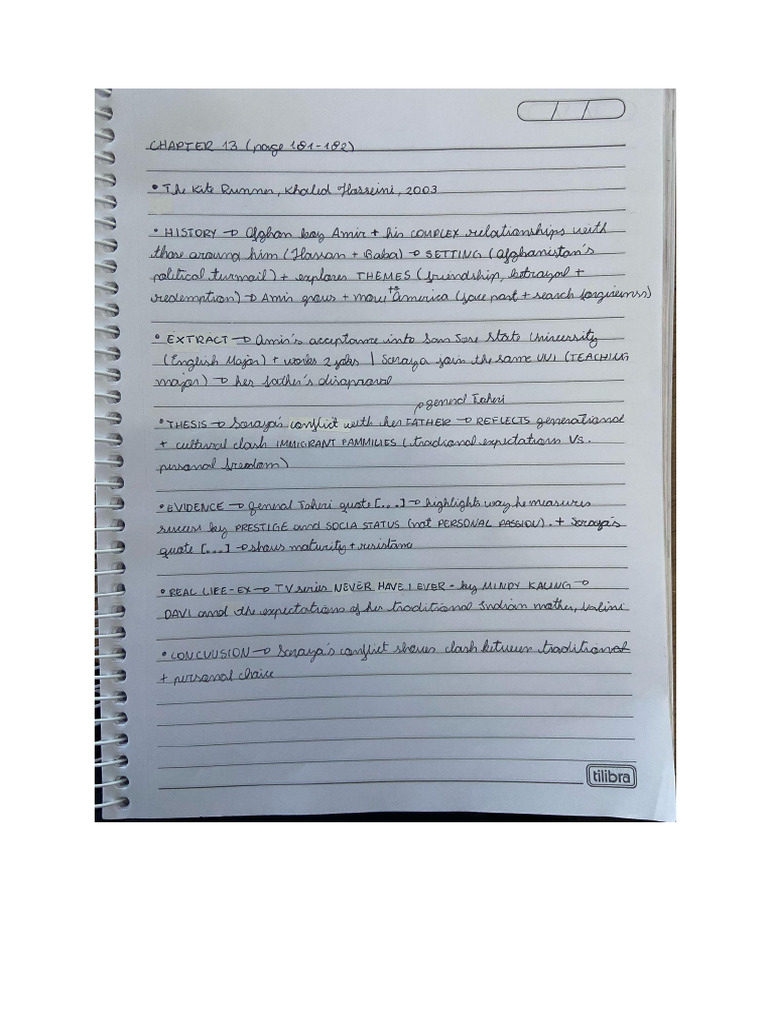 CHAPTER 13 (page 181-182)
• The Kite Runner, Khaled Hosseini, 2003
• HISTORY → Afghan boy Amir + his COMPLEX relationships with
those around him (Hassan + Baba) → SETTING (Afghanistan's
political turmoil) + explores THEMES (friendship, betrayal +
redemption) → Amir grows + move to America (face past + search forgiveness)
• EXTRACT → Amir's acceptance into San Jose State University
(English Major) + works 2 jobs | Soraya join the same UNI (TEACHING
major) → her father's disaproval
→ general Taheri
• THESIS → Soraya's conflict with her FATHER → REFLECTS generational
+ cultural clash IMMIGRANT FAMMILIES (tradional expectations VS.
personal freedom)
• EVIDENCE → general Taheri quote [...] → highlights way he measures
success by PRESTIGE and SOCIA STATUS (not PERSONAL PASSION). + Soraya's
quote [...] → shows maturity + resistance
• REAL LIFE-EX → TV series NEVER HAVE I EVER - by MINDY KALING →
DAVI and the expectations of her traditional Indian mother, Nalini
• CONCLUSION → Soraya's conflict shows clash between traditional
+ personal choice
tilibra